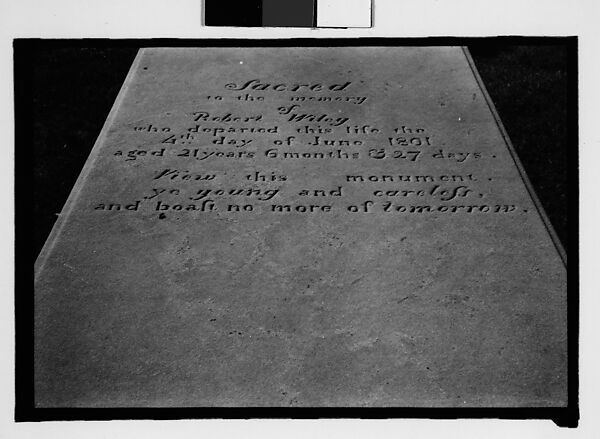 Sacred
to the memory
of
Robert Wiley
who departed this life the
4th day of June 1801
aged 21 years 6 months & 27 days.
View this monument.
ye young and careleſs,
and boaſt no more of tomorrow.